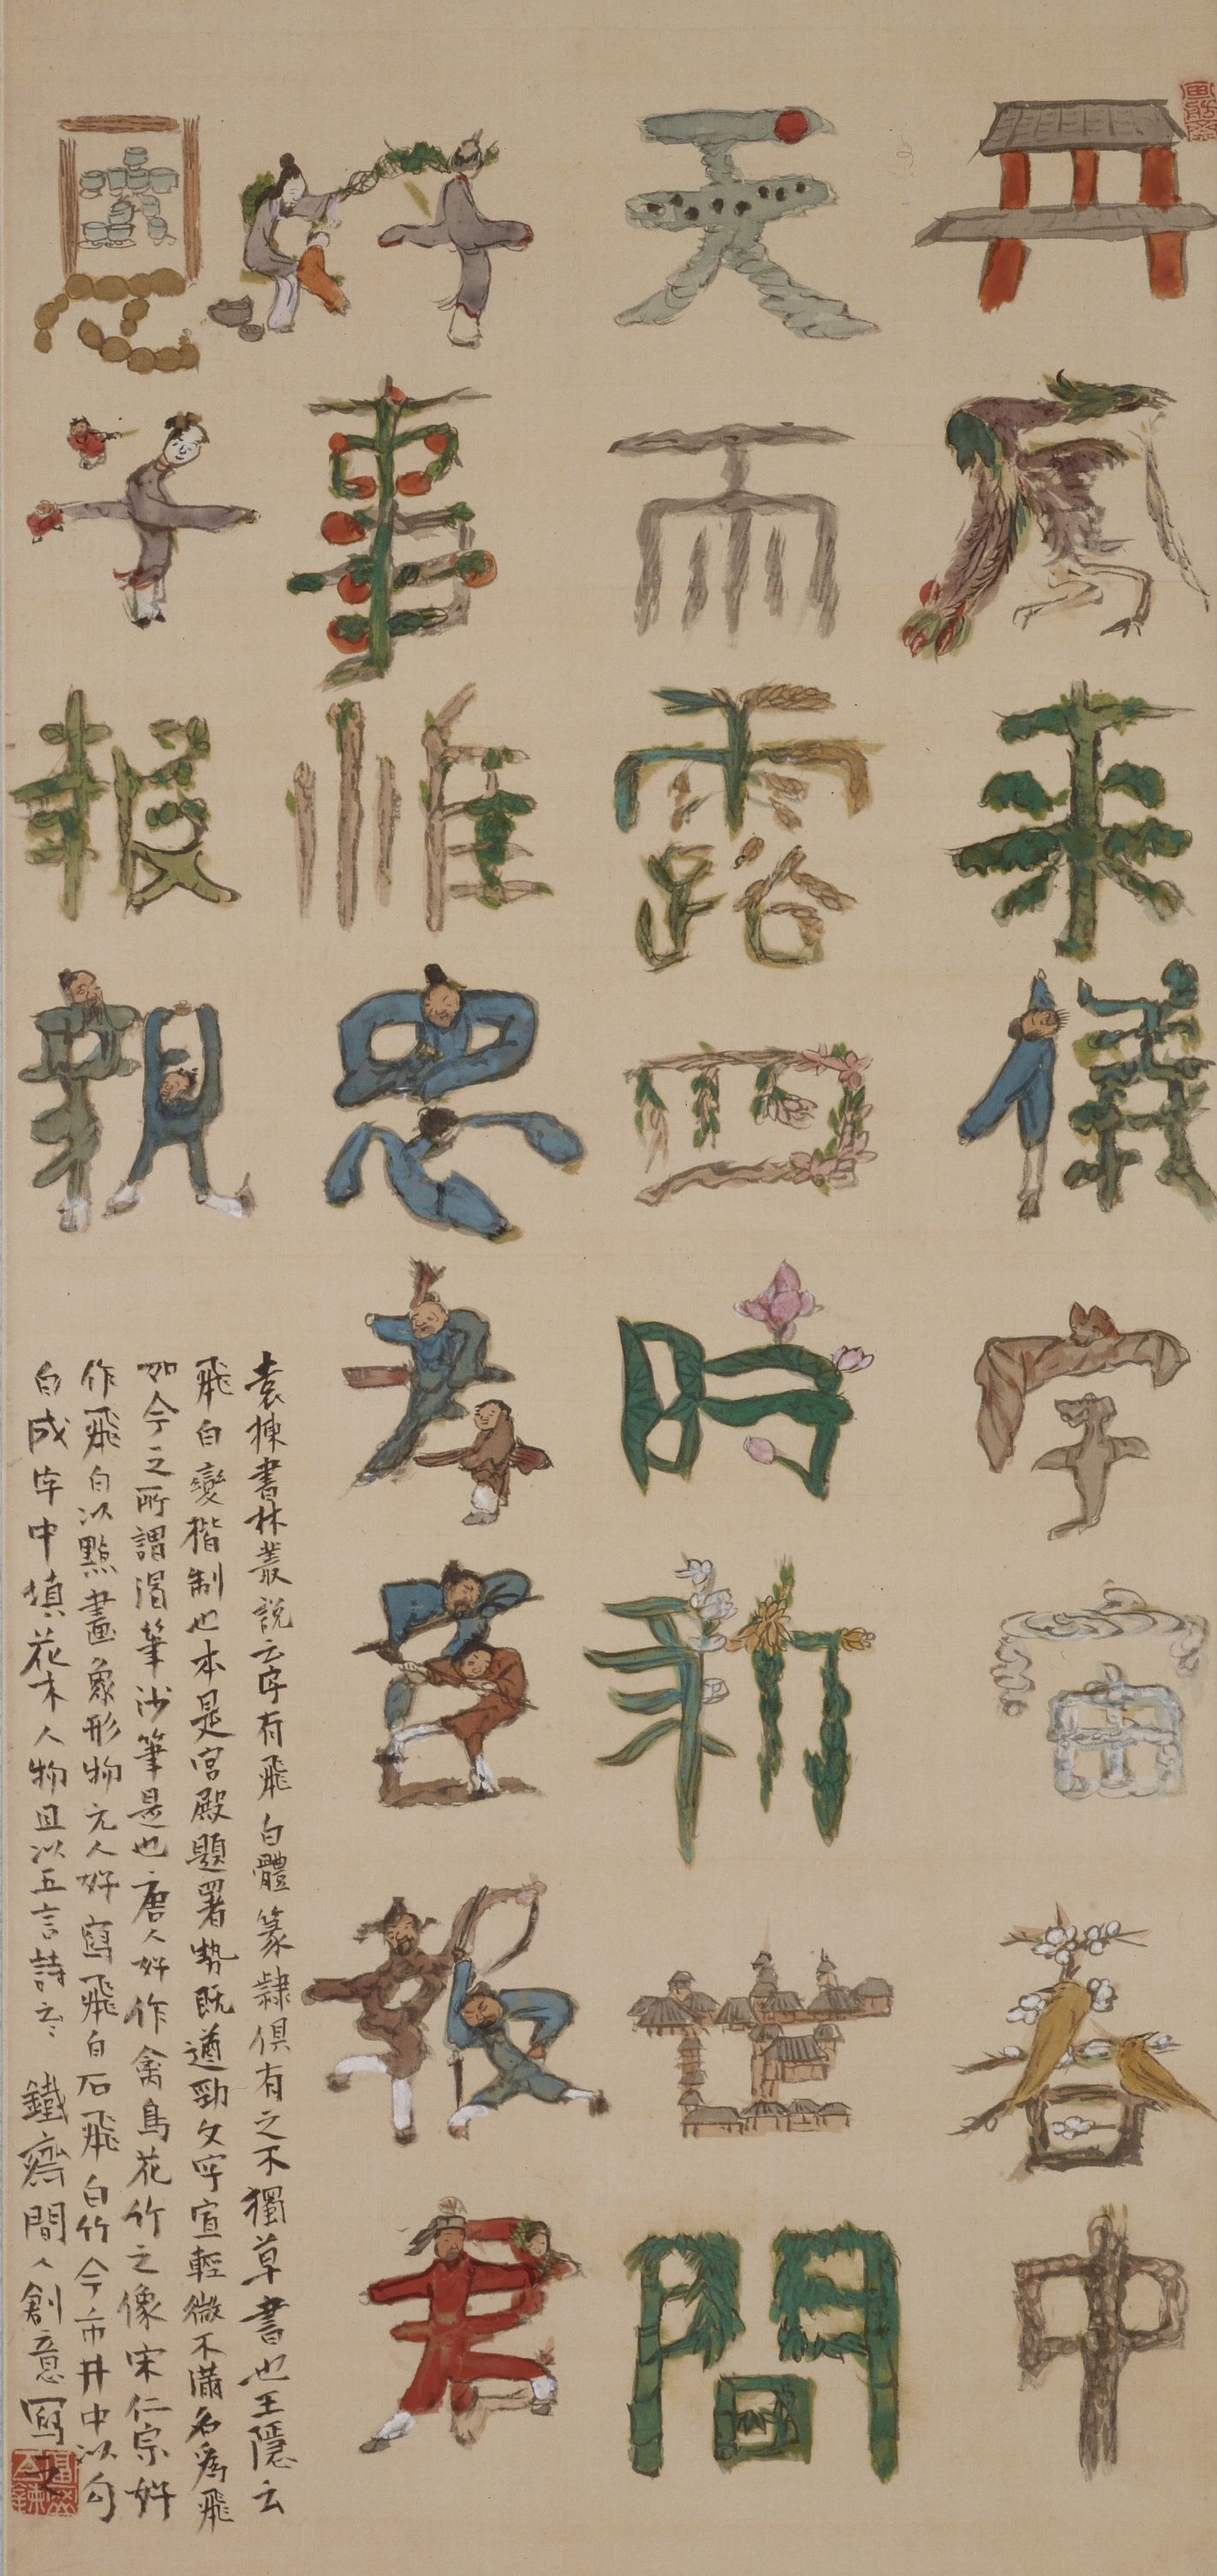 丹鳳来儀宇宙春中
天雨露四時新世間
好事惟忠孝臣報君
恩子報親
袁棟書林叢説云字有飛白體篆隷倶有之不獨草書也王隱云
飛白變楷制也本是宮殿題署勢既遒勁文字宜輕微不滿名為飛
如今之所謂渇筆沙筆是也唐人好作禽鳥花竹之像宋仁宗好
作飛白以點畫象形物元人好寫飛白石飛白竹今市井中以勾
白成字中填花木人物且以五言詩云々 鐵齋間人創意寫之